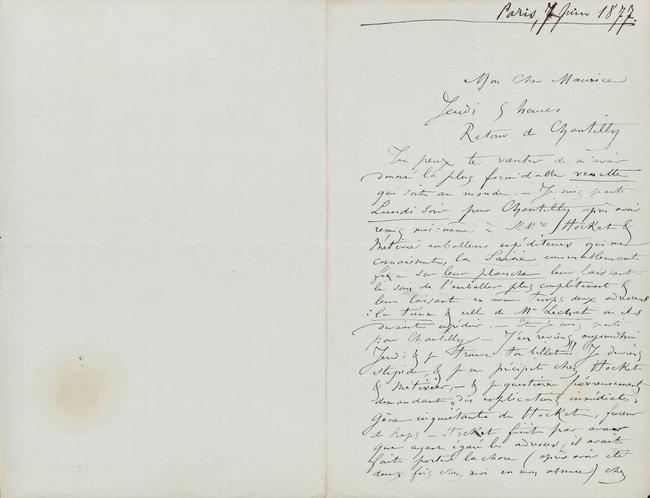 Paris, 7 Juin 1877.
Mon Cher Maurice
Jeudi 5 heures
Retour de Chantilly
Tu peux te vanter de m'avoir
donné la plus formidable venette
qui soit au monde. — Je suis parti
Lundi soir pour Chantilly après avoir
remis moi-même à M.M.rs Hocket &
Métivier emballeurs expéditeurs qui me
connaissent, la Saisie convenablement
fixée sur leur planche leur laissant
le soin de l'emballer plus complètement &
leur laissant en même temps deux adresses
: la tienne & celle de Mr Lechat où ils
devaient expédier. — Et je suis parti
par Chantilly — J'en reviens aujourd'hui
Jeudi & je trouve ton billet!!! Je deviens
stupide, & je me précipite chez Hocket
& Métivier, — & je questionne fiévreusement
demandant „des explications immédiates„
Gêne inquiétante de Hocket, fureur
de Rops — Hocket finit par avouer
que ayant égaré les adresses, il avait
fait porter la chose (après avoir été
deux fois chez moi en mon absence) chez